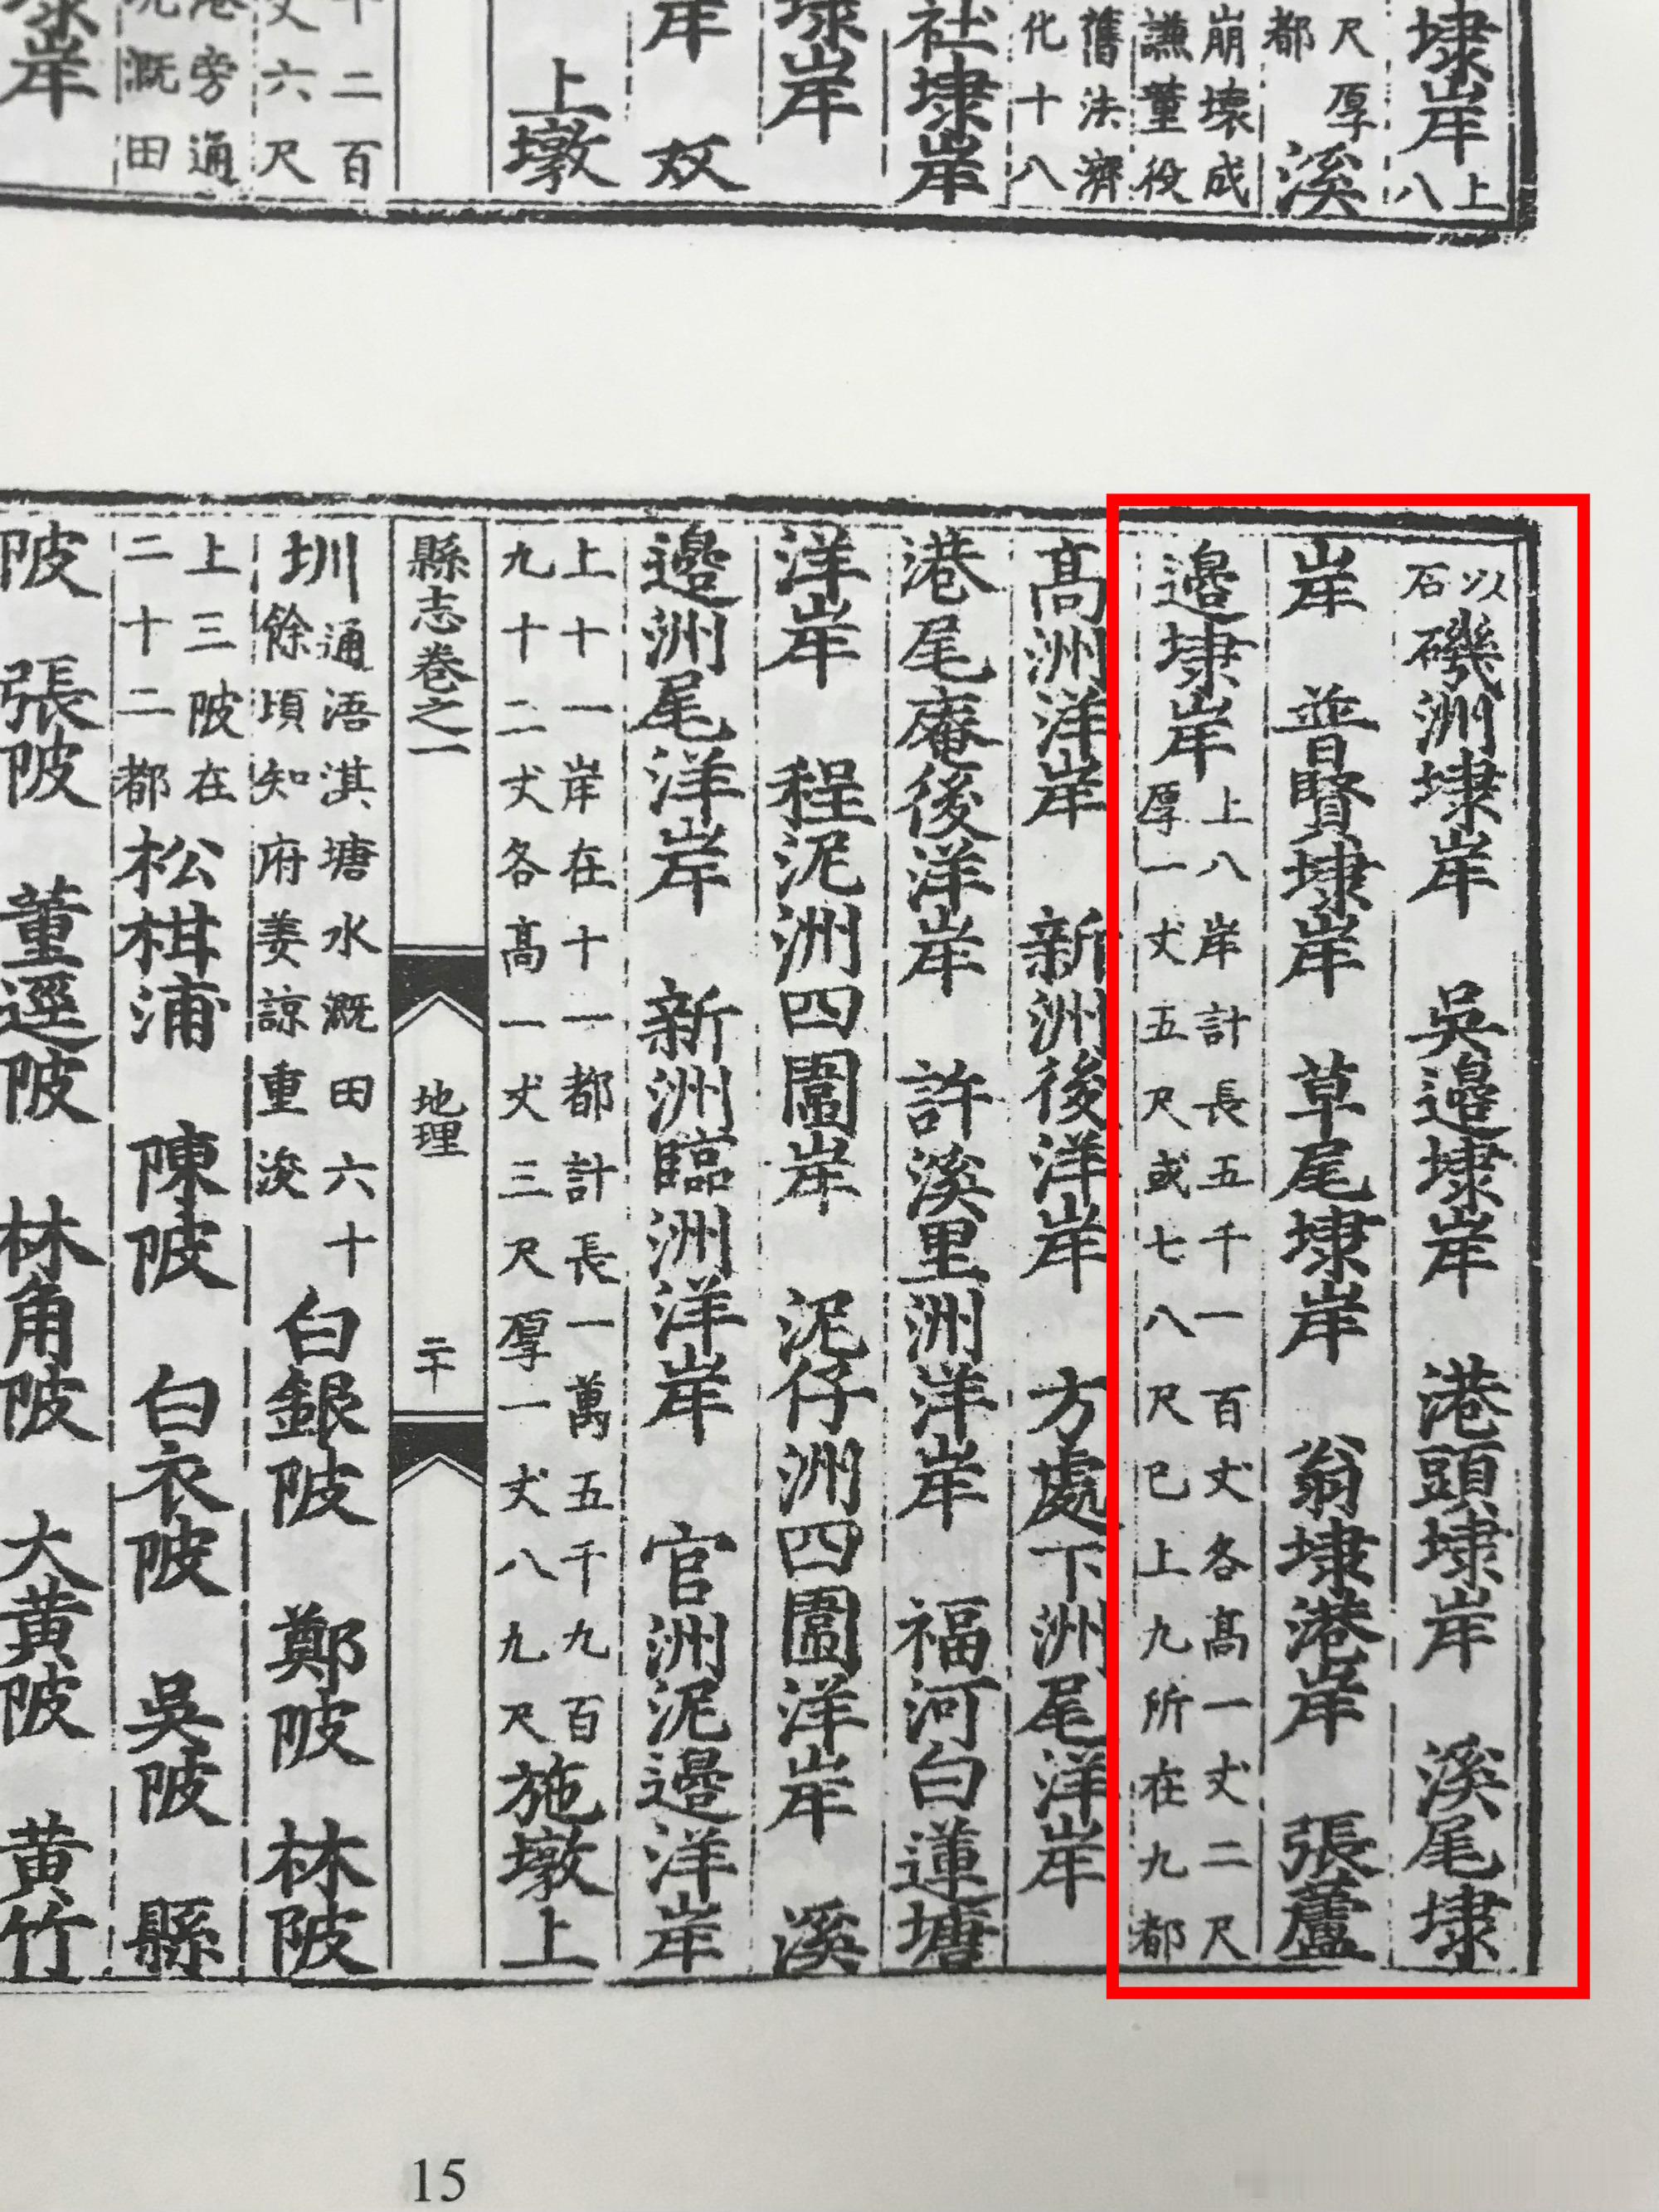 埭岸上
八
尺厚
都
溪
崩壞成
謙董役
舊法濟
化十八
社埭岸
埭岸
岸　双
上墩
二百
丈六尺
港旁通
溉田
埭岸
以
石
磯洲埭岸　吳邉埭岸　港頭埭岸　溪尾埭
岸　普賢埭岸　草尾埭岸　翁埭港岸　張蘆
邉埭岸
上八岸計長五千一百丈各高一丈二尺
厚一丈五尺或七八尺已上九所在九都
高洲洋岸　新洲後洋岸　方處下洲尾洋岸
港尾庵後洋岸　許溪里洲洋岸　福河白蓮塘
洋岸　程泥洲四圍岸　泥仔洲四圍洋岸　溪
邉洲尾洋岸　新洲臨洲洋岸　官洲泥邉洋岸
上十一岸在十一都計長一萬五千九百
九十二丈各高一丈三尺厚一丈八九尺
施墩上
縣志卷之一
地理
二十
圳
通浯淇塘水溉田六十
餘頃知府姜諒重浚
白銀陂　鄭陂　林陂
上三陂在
二十二都
松柑浦　陳陂　白衣陂　吳陂　縣
陂　張陂　董逕陂　林角陂　大黄陂　黄竹
15